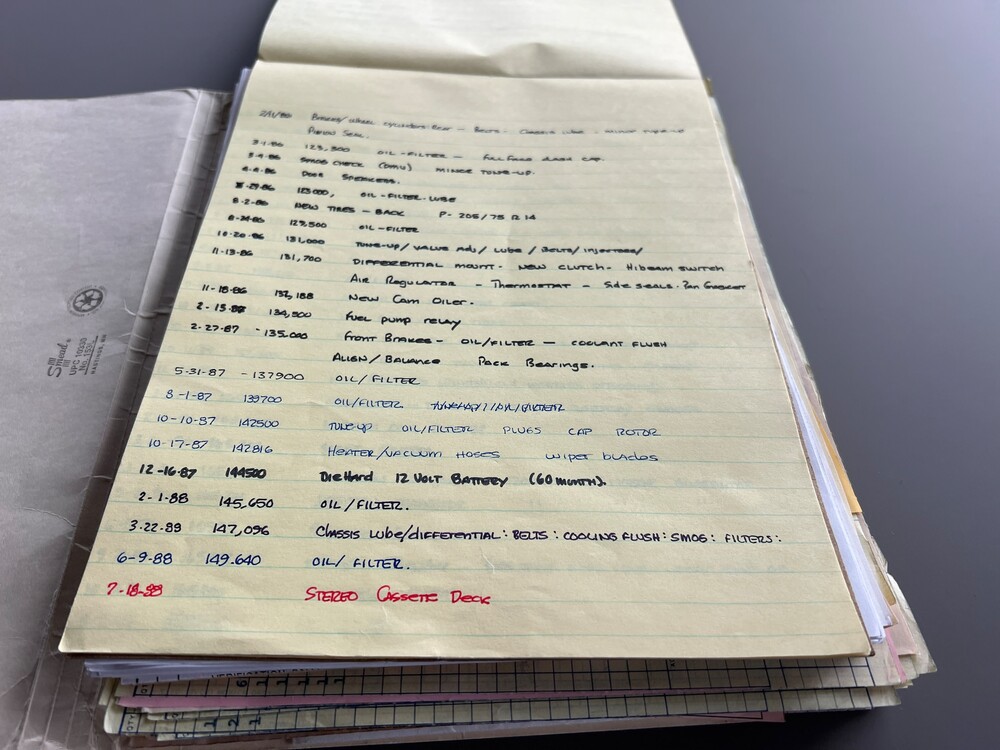 Brakes/wheel cylinders: Rear - Belts - Chassis Lube - minor tune-up
Seal.
3-1-86 123,500 OIL-FILTER-
3-4-86 SMOG CHECK (DMV) MINOR TUNE-UP.
DOOR SPEAKERS.
OIL-FILTER-LUBE
8-2-86 NEW TIRES - BACK P-205/75 R 14
129,500 OIL-FILTER
10-20-86 131,000 TUNE-UP/VALVE ADJ/LUBE/BELTS/INJECTORS/
11-13-86 131,700 DIFFERENTIAL MOUNT- NEW CLUTCH- HIBEAM SWITCH
AIR REGULATOR - THERMOSTAT - SIDE SEALS. PAN GASKET
11-18-86 132,188 NEW CAM OILER.
2-15-87 134,500 FUEL PUMP RELAY
2-27-87 -135,000 FRONT BRAKES- OIL/FILTER - COOLANT FLUSH
ALIGN/BALANCE PACK BEARINGS.
5-31-87 -137900 OIL/FILTER
8-1-87 139700 OIL/FILTER
10-10-87 142500 TUNE-UP OIL/FILTER PLUGS CAP ROTOR
10-17-87 142816 HEATER/VACUUM HOSES WIPER BLADES
12-16-87 144500 DIEHARD 12 VOLT BATTERY (60 MONTH).
2-1-88 145,650 OIL/FILTER.
3-22-88 147,096 CHASSIS LUBE/DIFFERENTIAL: BELTS: COOLING FLUSH: SMOG: FILTERS:
6-9-88 149.640 OIL/ FILTER.
7-18-88 STEREO CASSETE DECK
Smead
UPC 10330
HASTINGS, MN